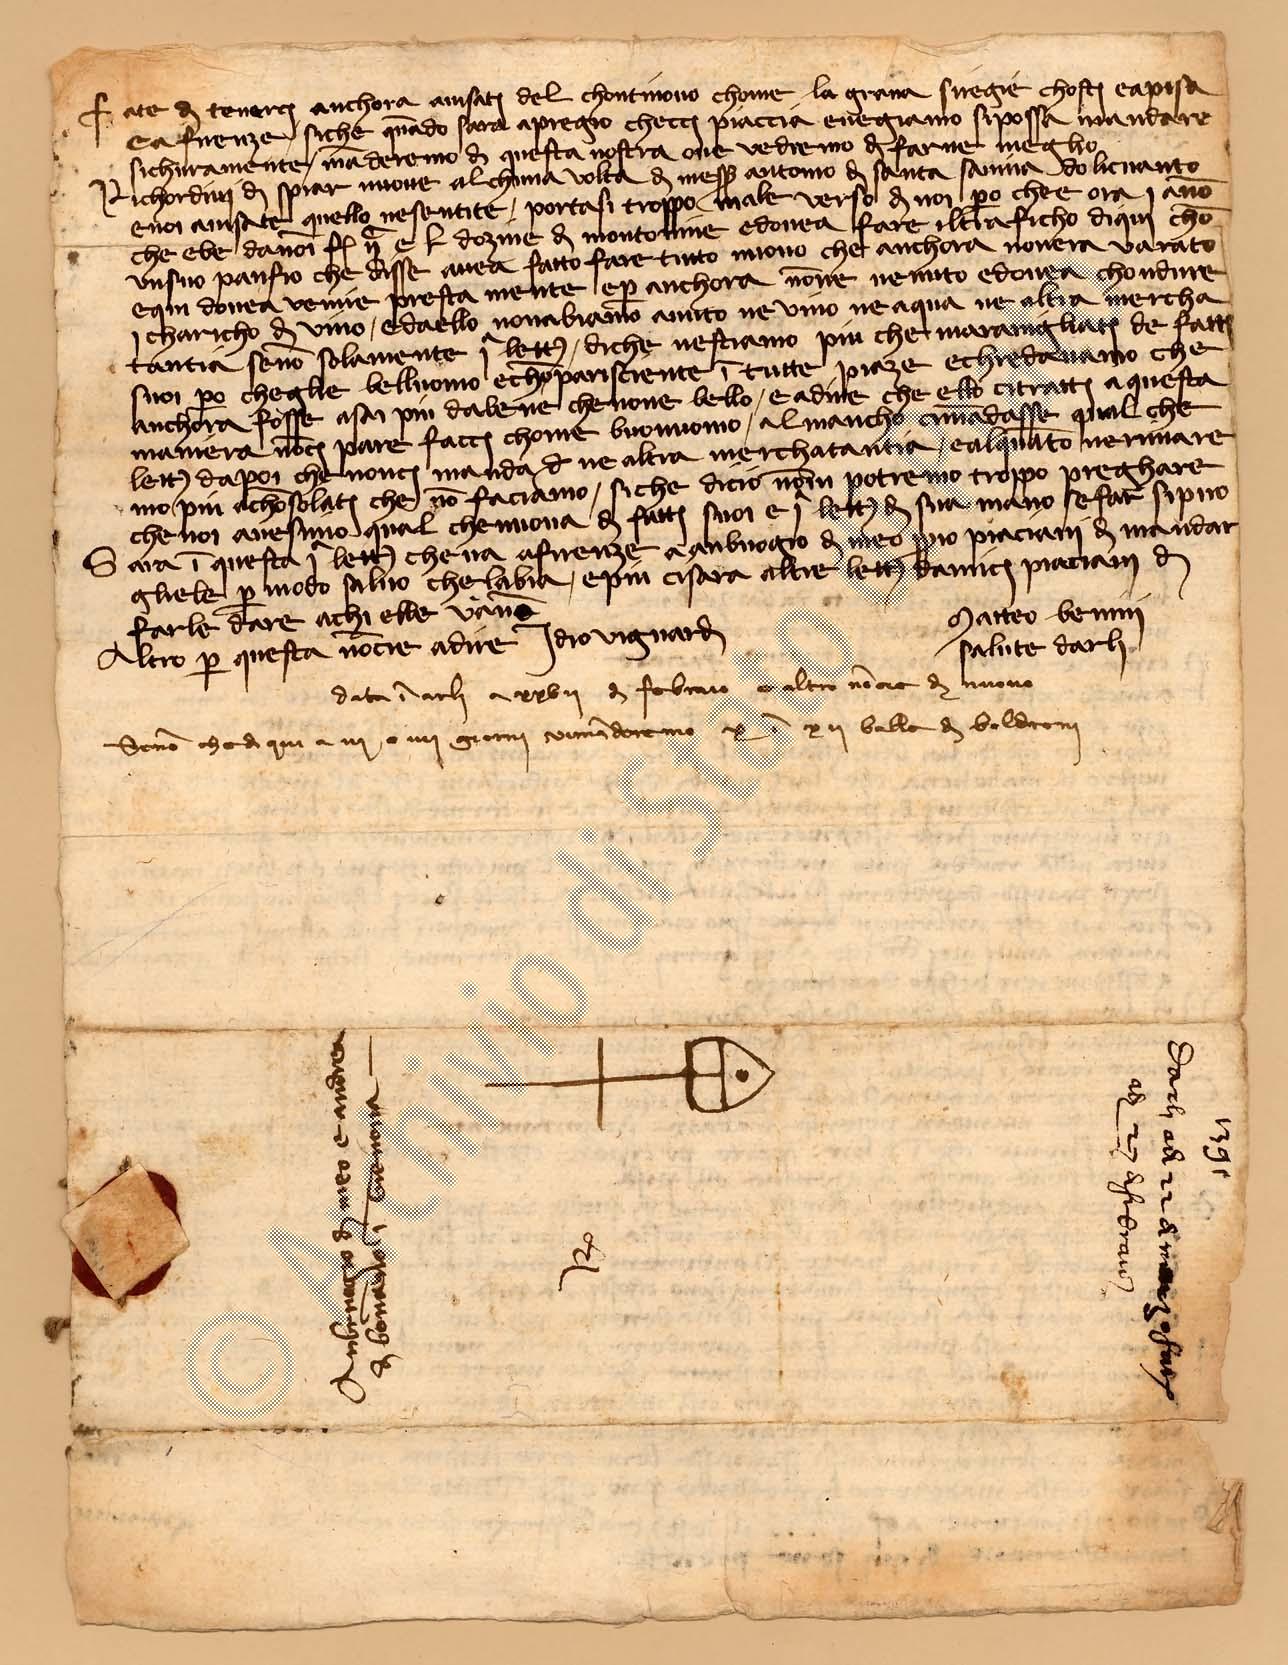 Fate di tenerci anchora avisati del chontinovo chome la grana si regie chosti e a pisa
e a firenze siche quado sara a pregio checci piaccia e vegiamo si possa mandare
sichuramente maderemo di questa nostra ove vedremo di farne meglio
Richordivi di spiar nuove alchuna volta di mess antonio di santa
e voi avisate quello ne sentite portasi troppo male verso di noi po che e ora j ano
che ebe da noi e dozine di montonine e dovea fare il traficho di qui cho
un suo panfio che disse avea fatto fare tutto nuovo che anchora non era varato
e qui dovea venire presta mente e p anchora none venuto e dovea chondure
j charicho di vino e da ello non abiamo auto ne vino ne aqua ne altra mercha
tantia seno solamente j lett di che ne stiamo piu che maravigliati de fatti
suoi po che gli e bell uomo e cho parisciente i tutte piaze e chredavamo che
anchora fosse asai piu da bene che none bello e a dire che ello ci tratti a questa
maniera noci pare facci chome buon uomo al mancho ci madasse qual che
lett da poi che nonci manda d ne altra merchatantia e alquato ne rimare
mo piu achosolati che no faciamo siche di cio no vi potremo troppo preghare
che noi avesimo qual che nuova di fatti suoi e j lett di sua mano se far si puo
Sara i questa j lett che va a firenze a anbruogio di meo piaciavi di mandar
gliele p modo salvo che labia e piu ci sara altre lett damici piaciavi di
farle dare a chi elle vano
Altro p questa nocie a dire Idio vi guardi
Matteo benini
salute darli
data i arli a xxvii di febraio e altro nocie di nuovo
Seno che di qui a iii o iiii giorni vi maderemo x i xii balle di boldroni
Anbruogio di meo e andrea
di bonano i
1391
Darli adi 22 di marzo
adi 27 di febraio
Ro
© Archivio di Stato